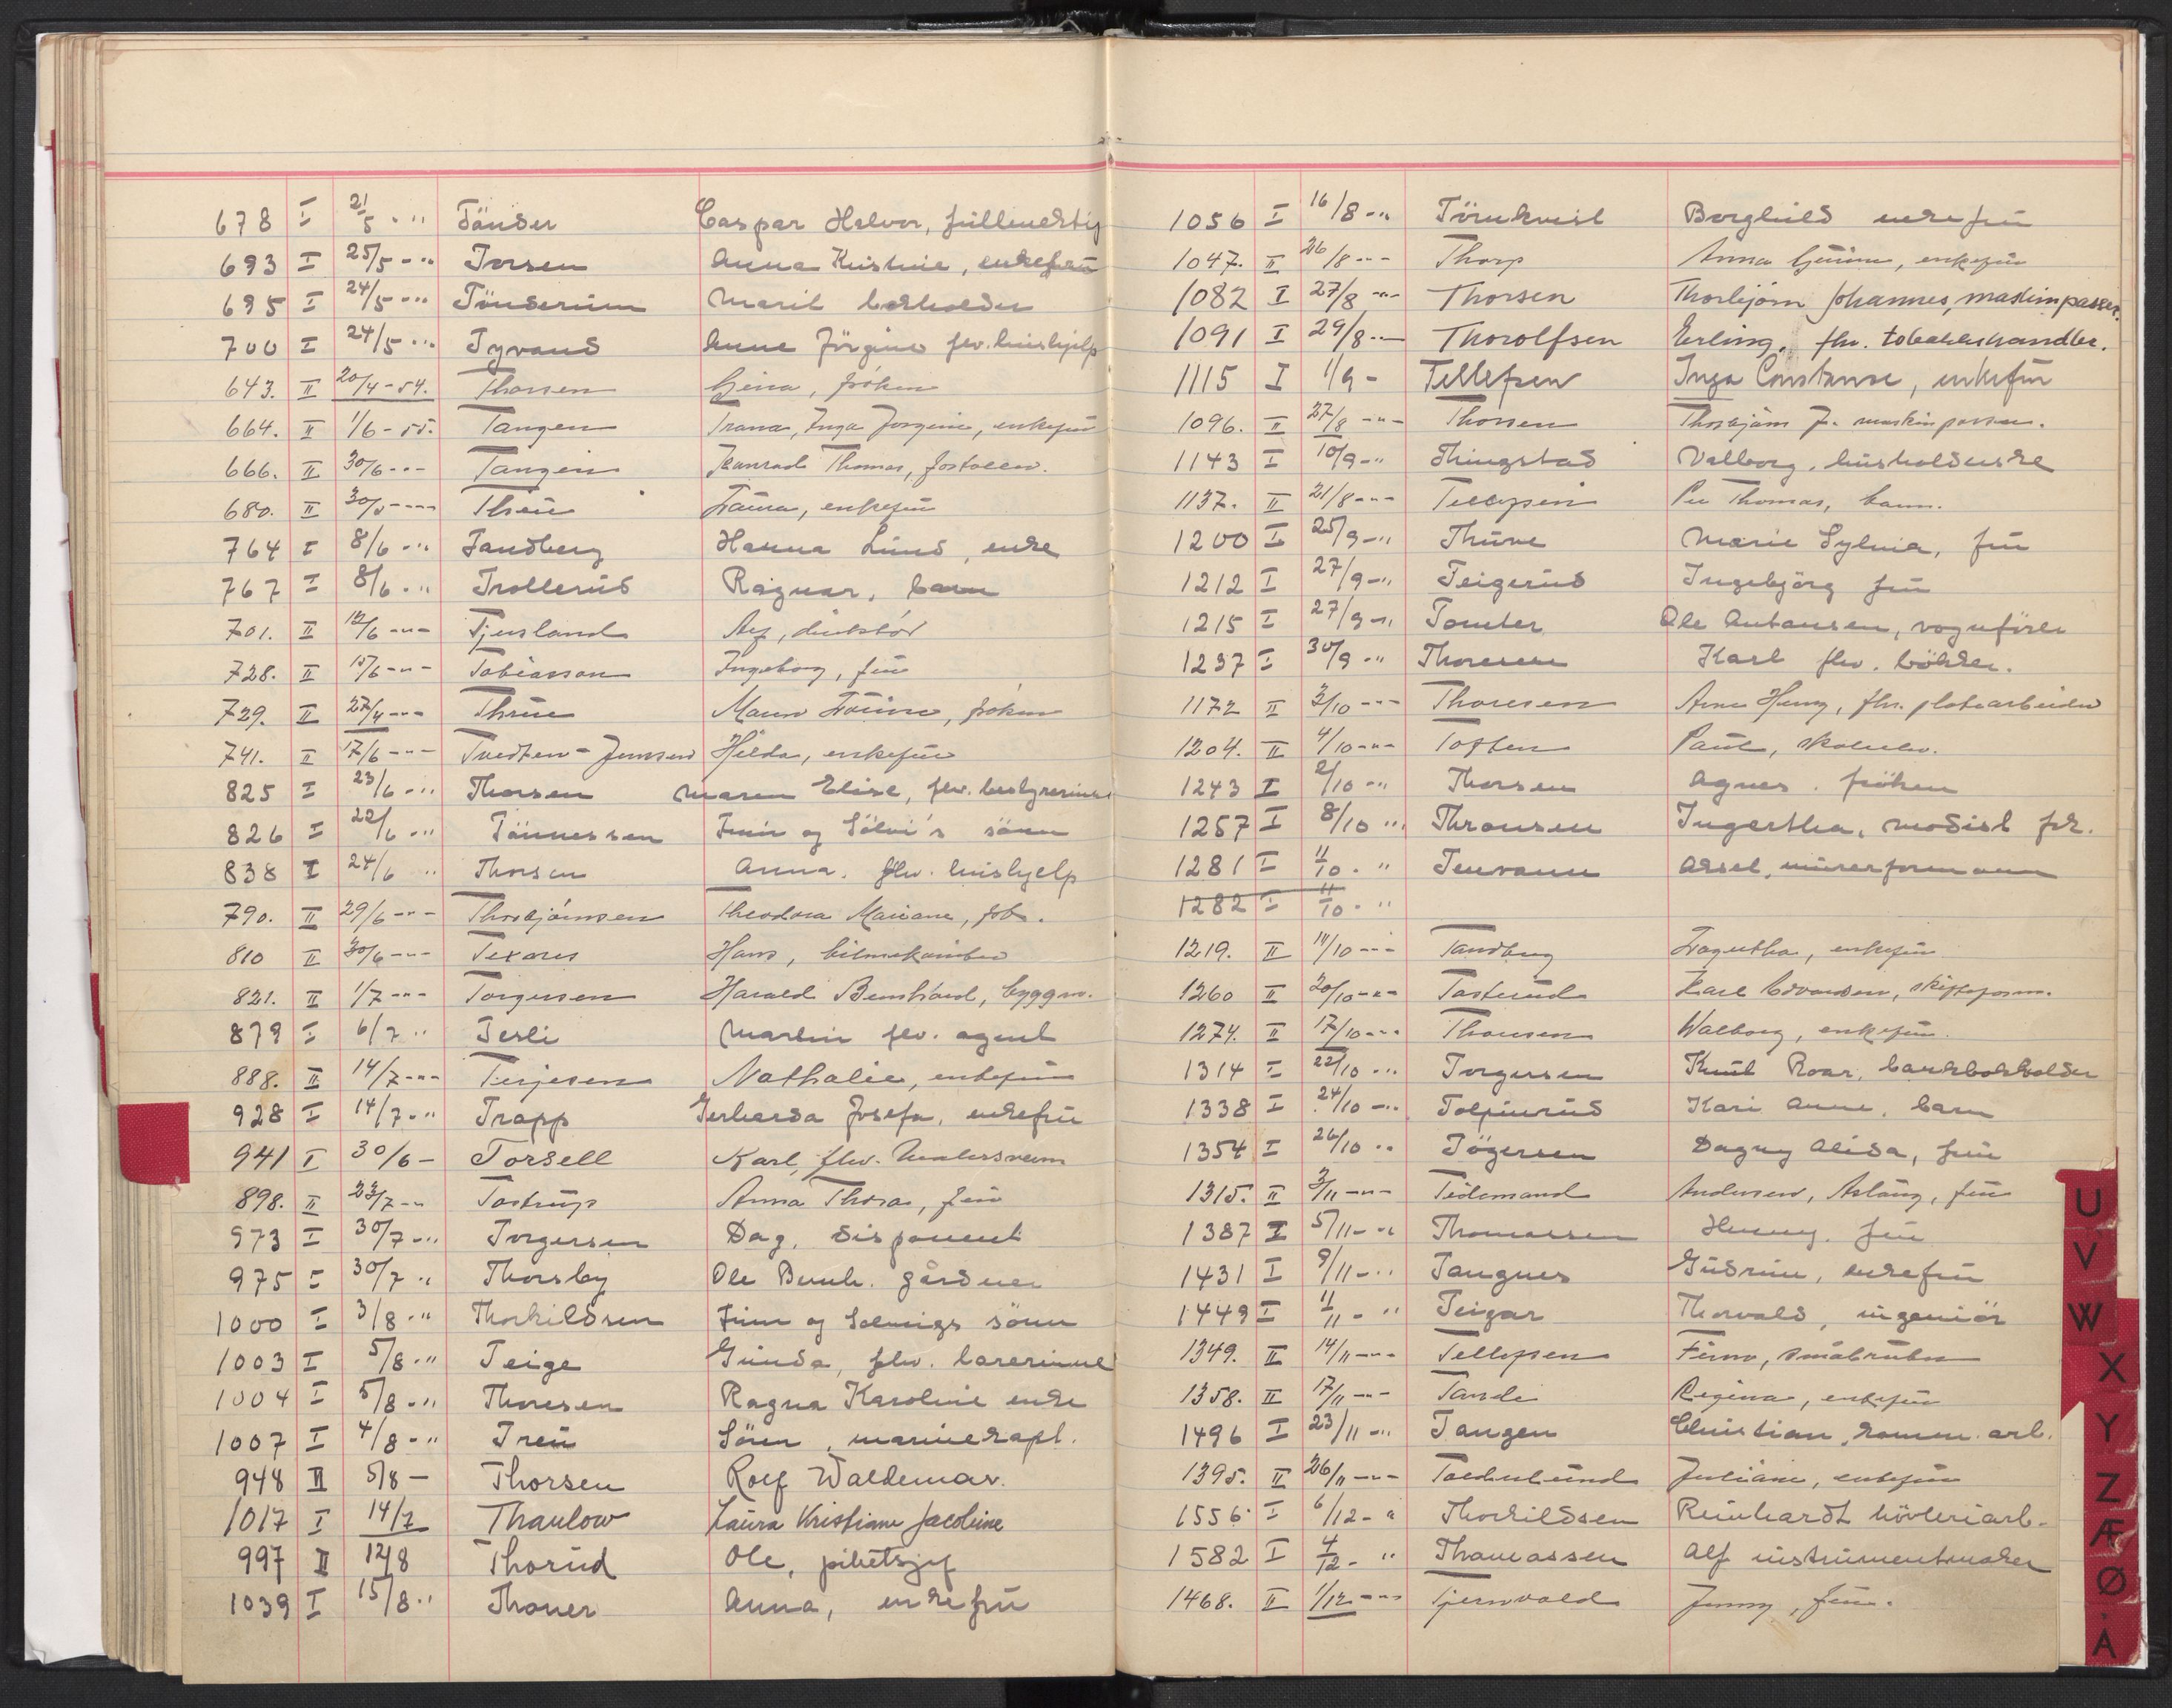 678 I 21/5 - " Tönder Caspar Halvor, fullmektig
693 I 25/5 - " Torsen Anna Kristine, enkefru
695 I 24/5 - " Tönderum Marit bokholder
700 I 24/5 - " Tyvand Anne Jörgine flv. hushjelp
643. II 20/4 - 54. Thorsen Gina, fröken
664. II 1/6 - 55. Tangen Trana, Inga Jorgine, enkefru
666. II 30/6 - " - Tangen Konrad Thomas,
680. II 30/5 - " - Laura, enkefru
764 I 8/6 - " Tandberg Hanna Lund, enke
767 I 8/6 - " Trollerud Ragnar, barn
701. II 12/6 - " - Tjensland direktör
728. II 15/6 - " - Tobiasson Ingeborg, fru
729. II 27/4 - " - Thrue Maren fröken
741. II 17/6 - " - Tvedten - Jensen Hilda, enkefru
825 I 23/6 - " Thorsen Maren Elise, flv. bestyrerinne
826 I 22/6 - " Tönnessen Finn og Sölvi's sönn
838 I 24/6 " Thorsen Anna. flv. hushjelp
790. II 29/6 - " - Thorbjörnsen Theodora Mariane,
810 II 30/6 - " - Texares Hans,
821. II 1/7 - " - Torgersen Harald Bernhard, byggm.
879 I 6/7 " Tesli Martin flv. agent
888. II 14/7 - " - Terjesen Nathalie, enkefru
928 I 14/7 - " Trapp Gerharda Josefa, enkefru
941 I 30/6 - Torsell Karl, flv.
898. II 23/7 - " Tostrup Anna Thora, fru
973 I 30/7 - " Torgersen Dag, disponent
975 I 30/7 " Thorsby Ole Bernh. gårdeier
1000 I 3/8 - " Thorkildsen Finn og Solveigs sönn
1003 I 5/8 - " Teige Gunda, flv. lærerinne
1004 I 5/8 - " Thoresen Ragna Karoline enke
1007 I 4/8 - " Treu Sören, marinekapt.
948 II 5/8 - Thorsen Rolf Waldemar.
1017 I 14/7 Thaulow Laura Kristiane Jacobine
997 II 12/8 Thorud Ole,
1039 I 15/8 " Thoner Anna, enkefru
1056 I 16/8 - " Törnkvist Borghild enkefru
1047. II 26/8 - " - Thorp Anna enkefru
1082 I 27/8 - " Thorsen Thorbjörn Johannes, maskinpasser.
1091 I 29/8 - " Thorolfsen Erling, flv. tobakkshandler.
1115 I 1/9 - Tellefsen Inga Constanse, enkefru
1096. II 27/8 - " - Thorsen Thorbjörn J. maskinpasser.
1143 I 10/9 - " Thingstad Valborg, husholderske
1137. II 21/8 - " - Tellefsen Per Thomas, barn.
1200 I 25/9 - " Thune Marie Sylvia, fru
1212 I 27/9 - " Teigerud Ingebjörg fru
1215 I 27/9 - " Tomter Ole Antonsen, vognfører
1237 I 30/9 " Thoresen Karl flv. bökker.
1172 II 3/10 - " - Thoresen Arne Henry, flv. platearbeider
1204. II 4/10 - " - Toften Paul, skoleelev.
1243 I 2/10 - " Thorsen Agnes. fröken
1257 I 8/10 " Thronsen Ingertha, modist frk.
1281 I 11/10 - " Tenvann Aksel, murerformann
1282 I 11/10 - "
1219. II 14/10 - " - Tandberg Ragnetha, enkefru
1260 II 20/10 - " - Tasterud Karl Edvardsen, skifteform.
1274. II 17/10 - " - Thonsen Walborg, enkefru.
1314 I 22/10 - " Torgersen Knut Roar, bankbokholder
1338 I 24/10 - " Tolpinrud Kari Anne, barn
1354 I 26/10 " Tögersen Dagny Alida, fru
1315. II 3/11 - " - Tidemand Andersen, Aslaug, fru
1387 I 5/11 - " Thomassen Henny. fru
1431 I 9/11 - " Tangnes Gudrun, enkefru
1449 I 11/11 - " Teigar Thorvald, ingeniör
1349. II 14/11 - " - Tellefsen Finn, småbruker
1358. II 17/11 - " - Tande Regina, enkefru
1496 I 23/11 - " Tangen Christian, komm. arb.
1395. II 26/11 - " - Juliane, enkefru
1556 I 6/12 - " Thorkildsen Reinhardt hövleriarb.
1582 I 4/12 - " Thomassen Alf instrumentmaker
1468. II 1/12 - " - Tjernvold Jenny, fru.
U
V
W
X
Y
Z
Æ
Ø
Å